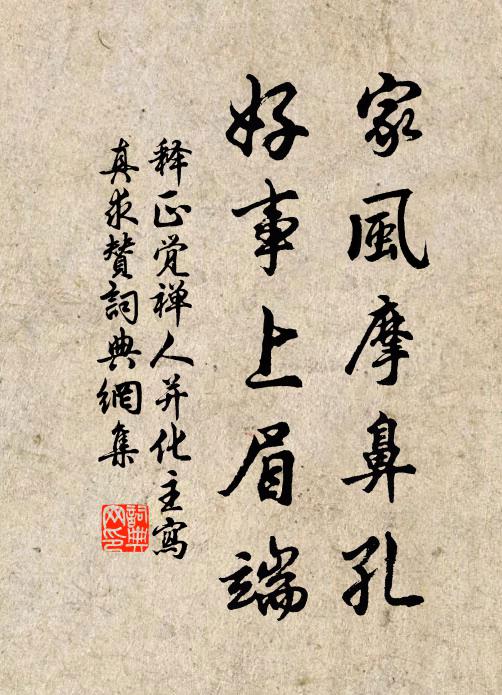 家風摩鼻孔
好事上眉端
释正觉禅人并化主寫
真求赞詞典網集